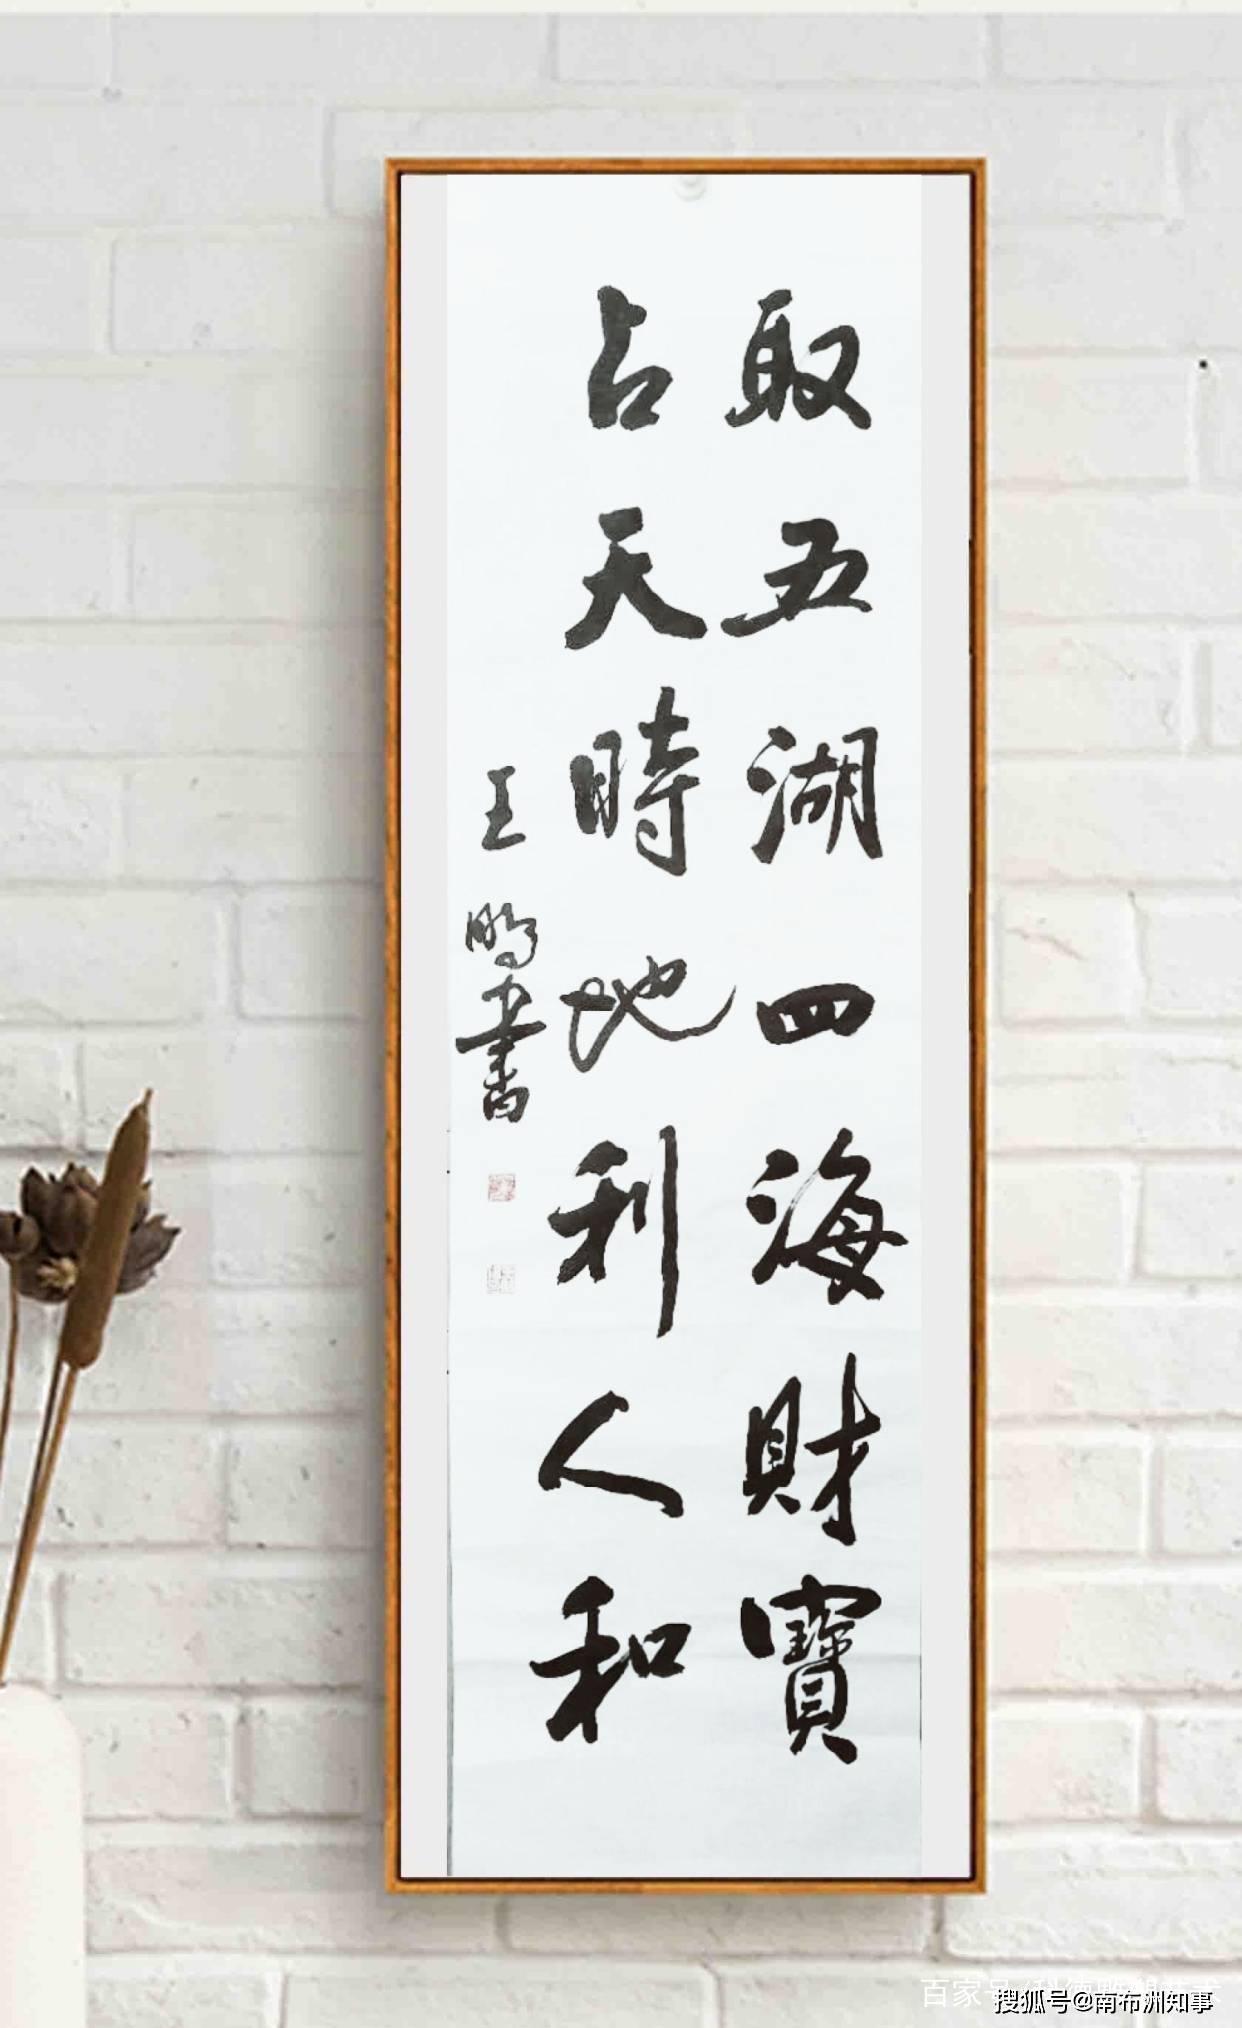 取五湖四海財寶
占天時地利人和
王鵬書
搜狐号@南布洲知事
百家号